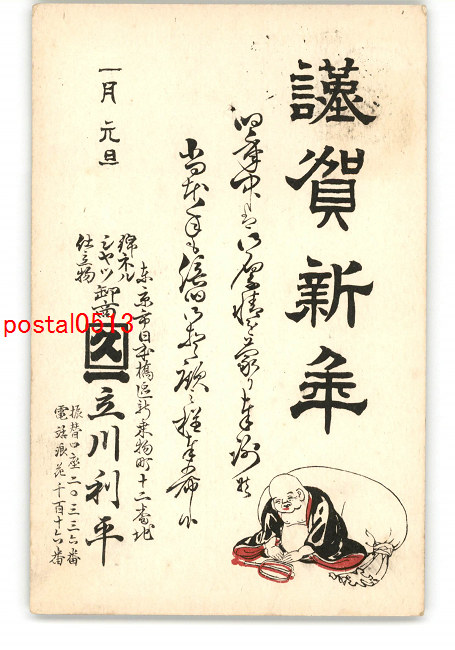 謹賀新年
旧年中は御厚情を蒙り奉謝候
尚本年も倍旧御引立願上候
一月元旦
東京市日本橋区新乗物町十二番地
綿ネル
シャツ卸商
仕立物
久一
立川利平
振替口座二〇三三六番
電話浪花千百十六番
postal0513